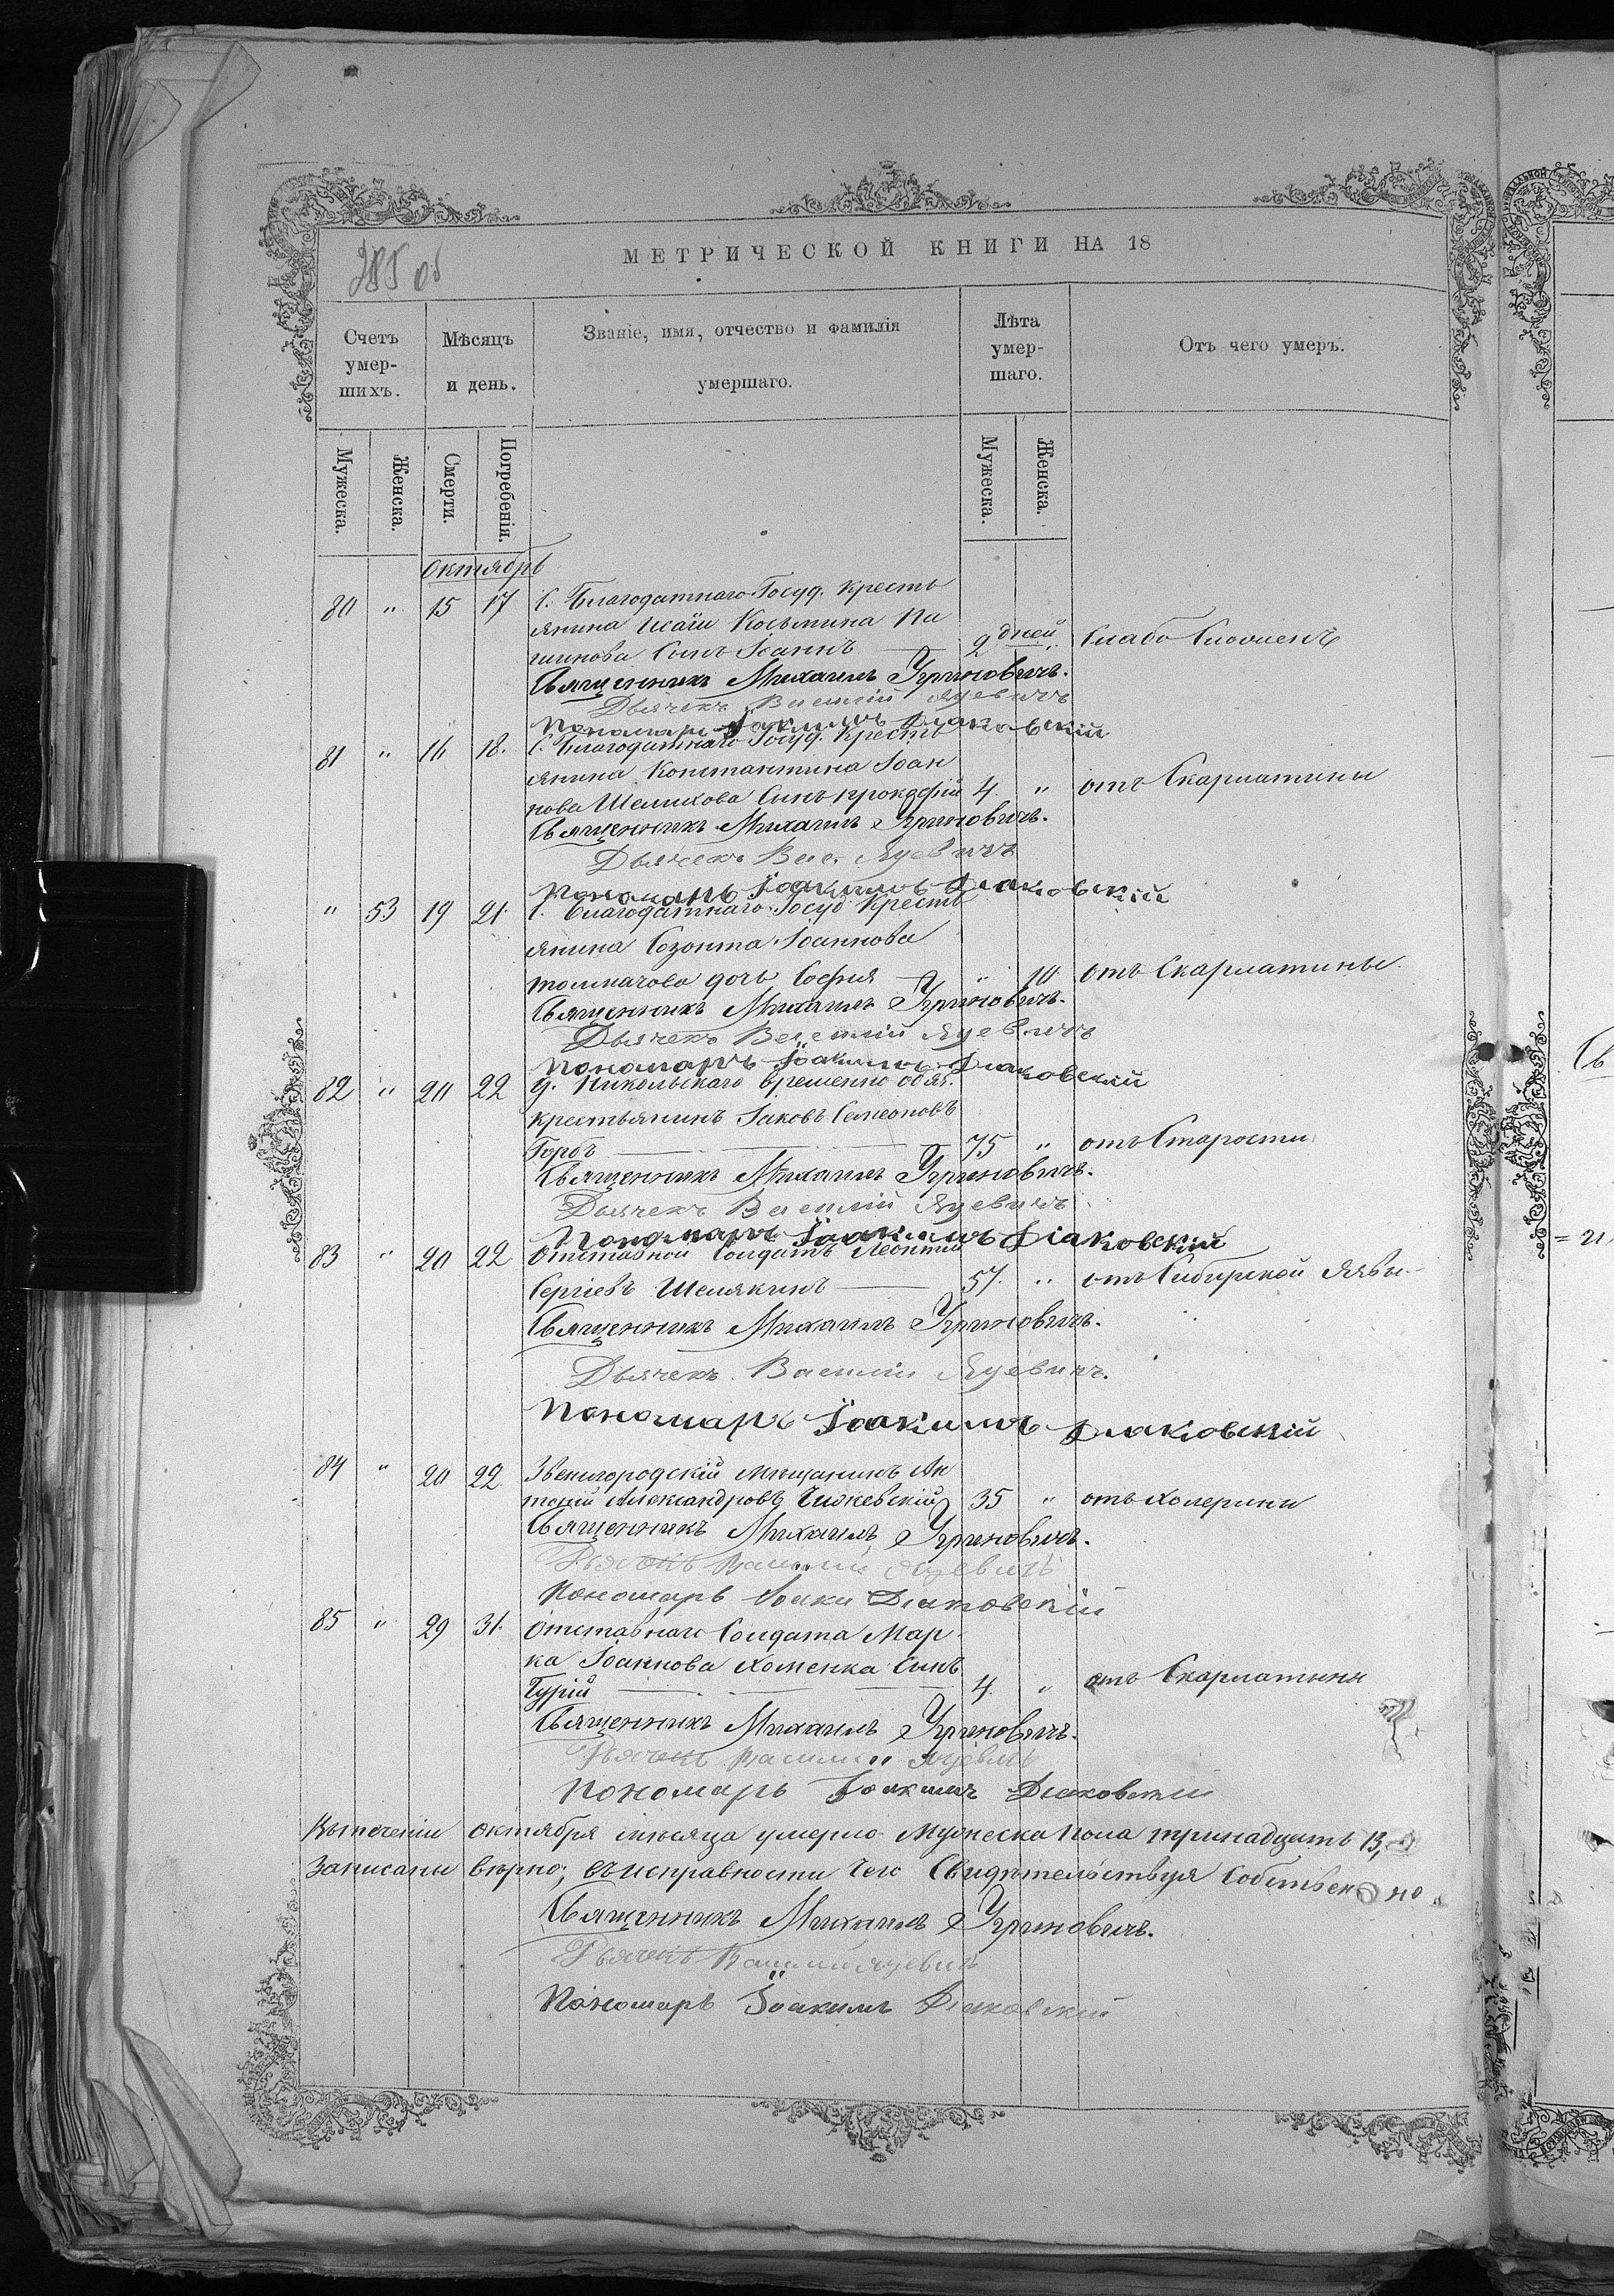 МЕТРИЧЕСКОЙ КНИГИ НА 18
285 об
Счетъ умер-шихъ.
Мѣсяцъ и день.
Званіе, имя, отчество и фамилія умершаго.
Лѣта умер-шаго.
Отъ чего умеръ.
Мужеска. Женска. Смерти. Погребенія. Мужеска. Женска.
Октябрь
80 " 15 17 С. Благодатнаго Госуд. кресть
янина Исаіи Косьмина Па
шинова Сынъ Іоаннъ — 2 дней " Слабо Сложенъ
Священникъ Михаилъ Угриновичъ.
Дьячекъ Василій Яцевичъ
Пономарь Іоакимъ Діаковскій
81 " 16 18. С. Благодатнаго Госуд. Кресть
янина Константина Іоан
нова Шелихова Сынъ Прокофій 4. " отъ Скарлатины
Священникъ Михаилъ Угриновичъ.
Дьячекъ Вас. Яцевичъ
Пономарь Іоакимъ Діаковскій
" 53 19 21. С. Благодатнаго Госуд. Кресть
янина Созонта Іоаннова
толмачова дочь Софія — " 10 отъ Скарлатины.
Священникъ Михаилъ Угриновичъ.
Дьячекъ Василій Яцевичъ
Пономарь Іоакимъ Діаковскій
82 " 20 22 д. Никольскаго временно обяз.
крестьянинъ Іаковъ Семеоновъ
Горбъ — 75 " отъ Старости
Священникъ Михаилъ Угриновичъ.
Дьячекъ Василій Яцевичъ
Пономарь Іоакимъ Діаковскій
83 " 20 22 Отставной Солдатъ Леонтій
Сергіевъ Шелякинъ — 57. " отъ Сибирской Язвы.
Священникъ Михаилъ Угриновичъ.
Дьячекъ Василій Яцевичъ.
Пономарь Іоакимъ Діаковскій
84 " 20 22 Звенигородскій мѣщанинъ Ан
тоній Александровъ Чижевскій 35 " отъ холерины
Священникъ Михаилъ Угриновичъ.
Дьячекъ Василій Яцевичъ
Пономарь Іоаки Діаковскій
85 " 29 31. Отставнаго Солдата Мар-
ка Іоаннова Хоменка Сынъ
Гурій — 4. " отъ Скарлатины
Священникъ Михаилъ Угриновичъ.
Дьячекъ Василій Яцевичъ
Пономарь Іоакимъ Діаковскій
Въ теченіи октября мѣсяца умерло Мужеска пола тринадцать 13,
Записаны вѣрно; въ исправности чего Свидѣтельствуя Собственно
Священникъ Михаилъ Угриновичъ.
Дьячекъ Василій Яцевичъ
Пономарь Іоакимъ Діаковскій